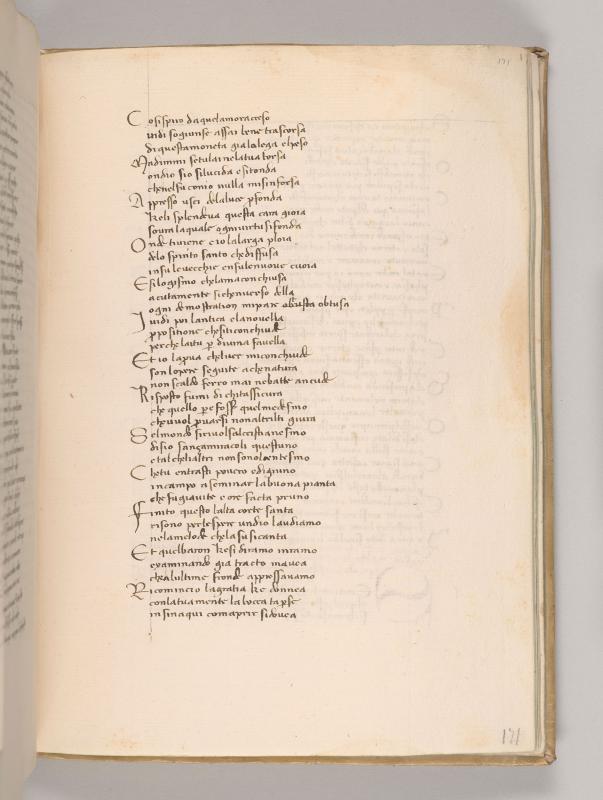 171
Cosi spiro da quelamor acceso
indi sogiunse assai bene trascorsa
di questa moneta gia lalega elpeso
Madimmi setulai nelatua borsa
ondio sio silucida esitonda
chenelsu conio nulla misinforsa
Appresso usci delaluce pfonda
keli splendeva questa cara gioia
soura laquale ogni virtu sifonda
Onde tiviene e io lalarga ploia
delo spirito santo chediffusa
insule vecchie ensulenuove cuoia
E silogismo chelama conchiusa
acutamente siche nverso della
ogni demostration mipare obtusa
Iudi poi lantica elanovella
ppositione chesiticonchiude
perche laitu p divina favella
Et io lapruova chelver miconchiude
son lopere seguite achenatura
non scalda ferro mai nebatte ancude
Risposto fumi di chitassicura
che quello pere fosser quelmedesmo
chevuol pruovarsi nonaltrilti giura
Selmondo sirivolse alcristianesmo
dissio sanza miracoli questuno
e tal chelialtri non sonolcentesmo
Chetu entrasti povero edigiuno
in campo a seminar labuona pianta
che fu gia vite e ore facta pruno
Finito questo lalta corte santa
risono perlespere un dio laudiamo
nela melode chela su si canta
Et quelbaron kesi diramo inramo
examinando gia tracto mavea
chealultime fronde appressavamo
Ricomincio lagratia ke donnea
conlatuamente labocca taperse
insinaqui comaprir sidovea
171